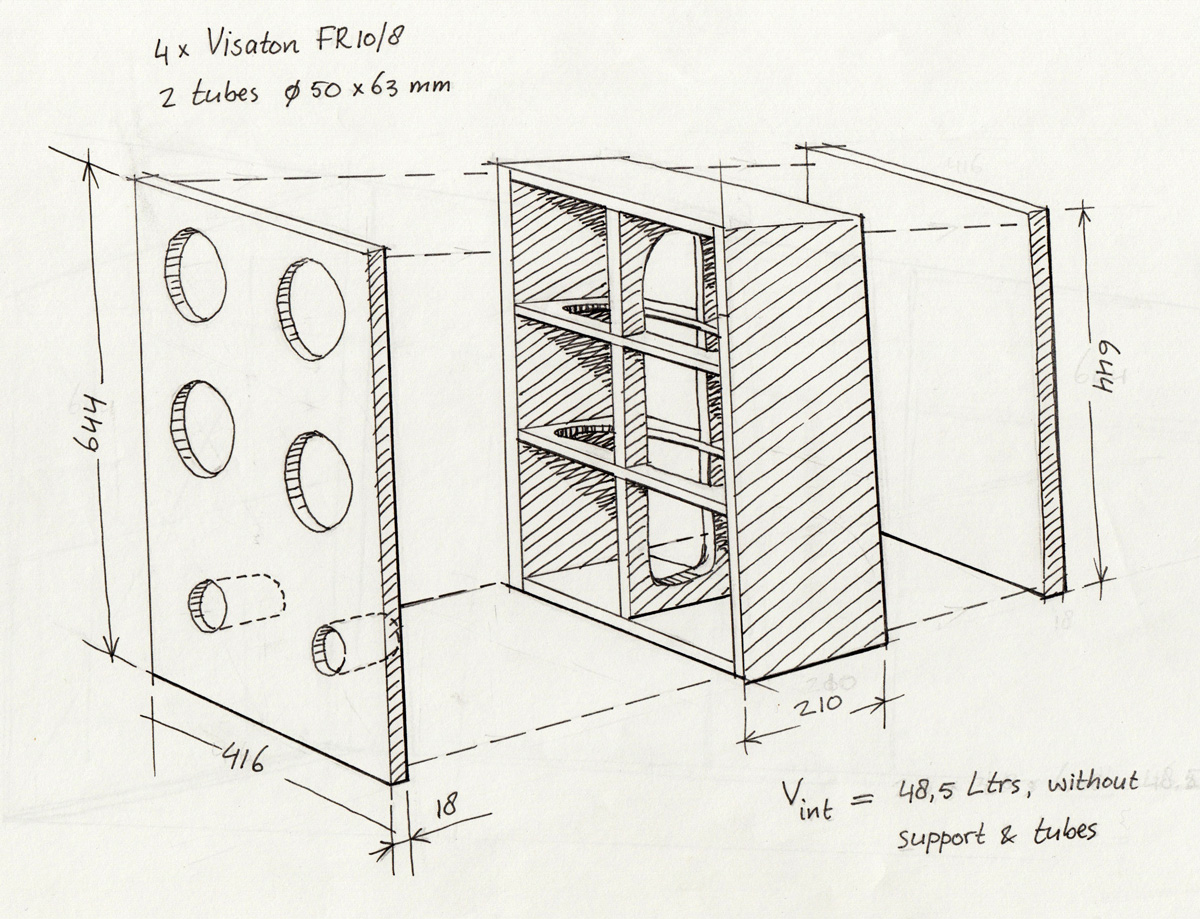 4x Visaton FR10/8
2 tubes ϕ 50 x 63 mm
644
644
416
18
210
Vint = 48,5 Ltrs, without
support & tubes